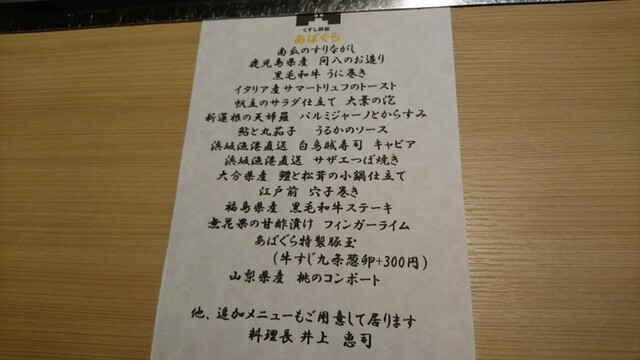 くずし鉄板
あばぐら
南瓜のすりながし
鹿児島県産 間八のお造り
黒毛和牛 うに巻き
イタリア産サマートリュフのトースト
帆立のサラダ仕立て 大葉の泡
新蓮根の天婦羅 パルミジャーノとからすみ
鮎と丸茄子 うるかのソース
浜坂漁港直送 白烏賊寿司 キャビア
浜坂漁港直送 サザエつぼ焼き
大分県産 鱧と松茸の小鍋仕立て
江戸前 穴子巻き
福島県産 黒毛和牛ステーキ
無花果の甘酢漬け フィンガーライム
あばぐら特製豚玉
(牛すじ九条葱卵+300円)
山梨県産 桃のコンポート
他、追加メニューもご用意して居ります
料理長 井上 恵司